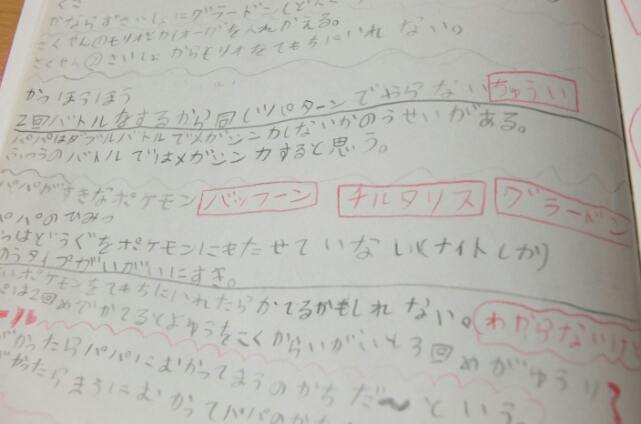 かならずさいしょにグラードン
さくせん①モリオとカイオーガを入れかえる。
さくせん②さいしょからモリオをてもちにいれない。
かつほうほう
2回バトルをするから同じパターンでやらない ちゅうい
パパはダブルバトルでメガシンカしないかのうせいがある。
ふつうのバトルではメガシンカすると思う。
パパがすきなポケモン バッフーン チルタリス グラードン
パパのひみつ
はどうぐをポケモンにもたせていない(ナイトしか)
タイプがいがいにすき。
ポケモンをてもちにいれたらかてるかもしれない。 わからないけど
は2回めでかてるとよゆうをこくからいがいと3回めがゆうり
かったらパパにむかってまうのかちだ〜という。
かったらまうにむかってパパのか